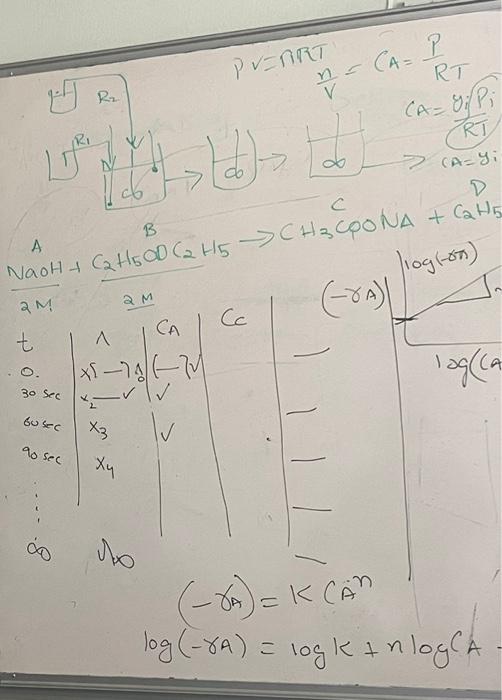 PV=nRT
n/V = CA = P/RT
R2
CA = yi Pi/RT
R1
CA=yi
A B C D
NaOH + C2H5OO C2H5 → CH3COONA + C2H5
2M 2M
log(-rA)
t Λ CA Cc (-rA)
0.
30 sec x2 — ✓ ✓
log(CA
60 sec x3 ✓
90 sec x4
∞ Λ∞
(-rA) = K CA^n
log(-rA) = log K + n log CA